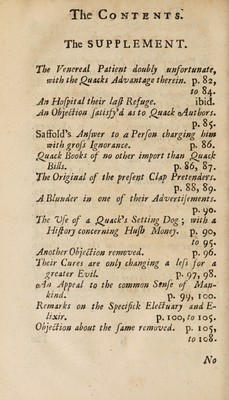 The CONTENTS.
The SUPPLEMENT.
The Venereal Patient doubly unfortunate,
with the Quacks Advantage therein. p. 82,
to 84.
An Hoſpital their laſt Refuge. ibid.
An Objection ſatisfy'd as to Quack Authors.
p. 85.
Saffold's Anſwer to a Perſon charging him
with groſs Ignorance. p. 86.
Quack Books of no other import than Quack
Bills. p. 86, 87.
The Original of the preſent Clap Pretenders.
p. 88, 89.
A Blunder in one of their Advertiſements.
p. 90.
The Uſe of a Quack's Setting Dog; with a
Hiſtory concerning Huſh Money. p. 90,
to 95.
Another Objection removed. p. 96.
Their Cures are only changing a leſs for a
greater Evil. p. 97, 98.
An Appeal to the common Senſe of Man-
kind. p. 99, 100.
Remarks on the Specifick Electuary and E-
lixir. p. 100, to 105.
Objection about the ſame removed. p. 105,
to 108.
No